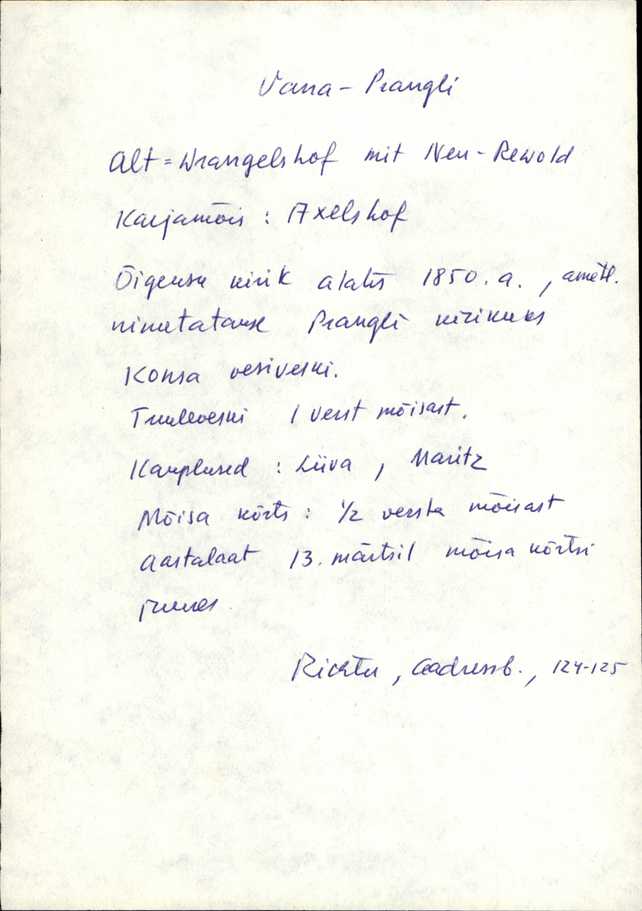 Vana - Prangli
Alt = Wrangelshof mit Neu - Rewold
Karjamõis : Axelshof
Õigeusu kirik alates 1850. a. , ametl.
nimetatakse Prangli kirikuks
Konsa vesiveski.
Tuuleveski 1 verst mõisast.
Kauplused : Liiva , Maritz
Mõisa kõrts : 1/2 versta mõisast
Aastalaat 13. märtsil mõisa kõrtsi
juures
Richter , Aadressb. , 124-125